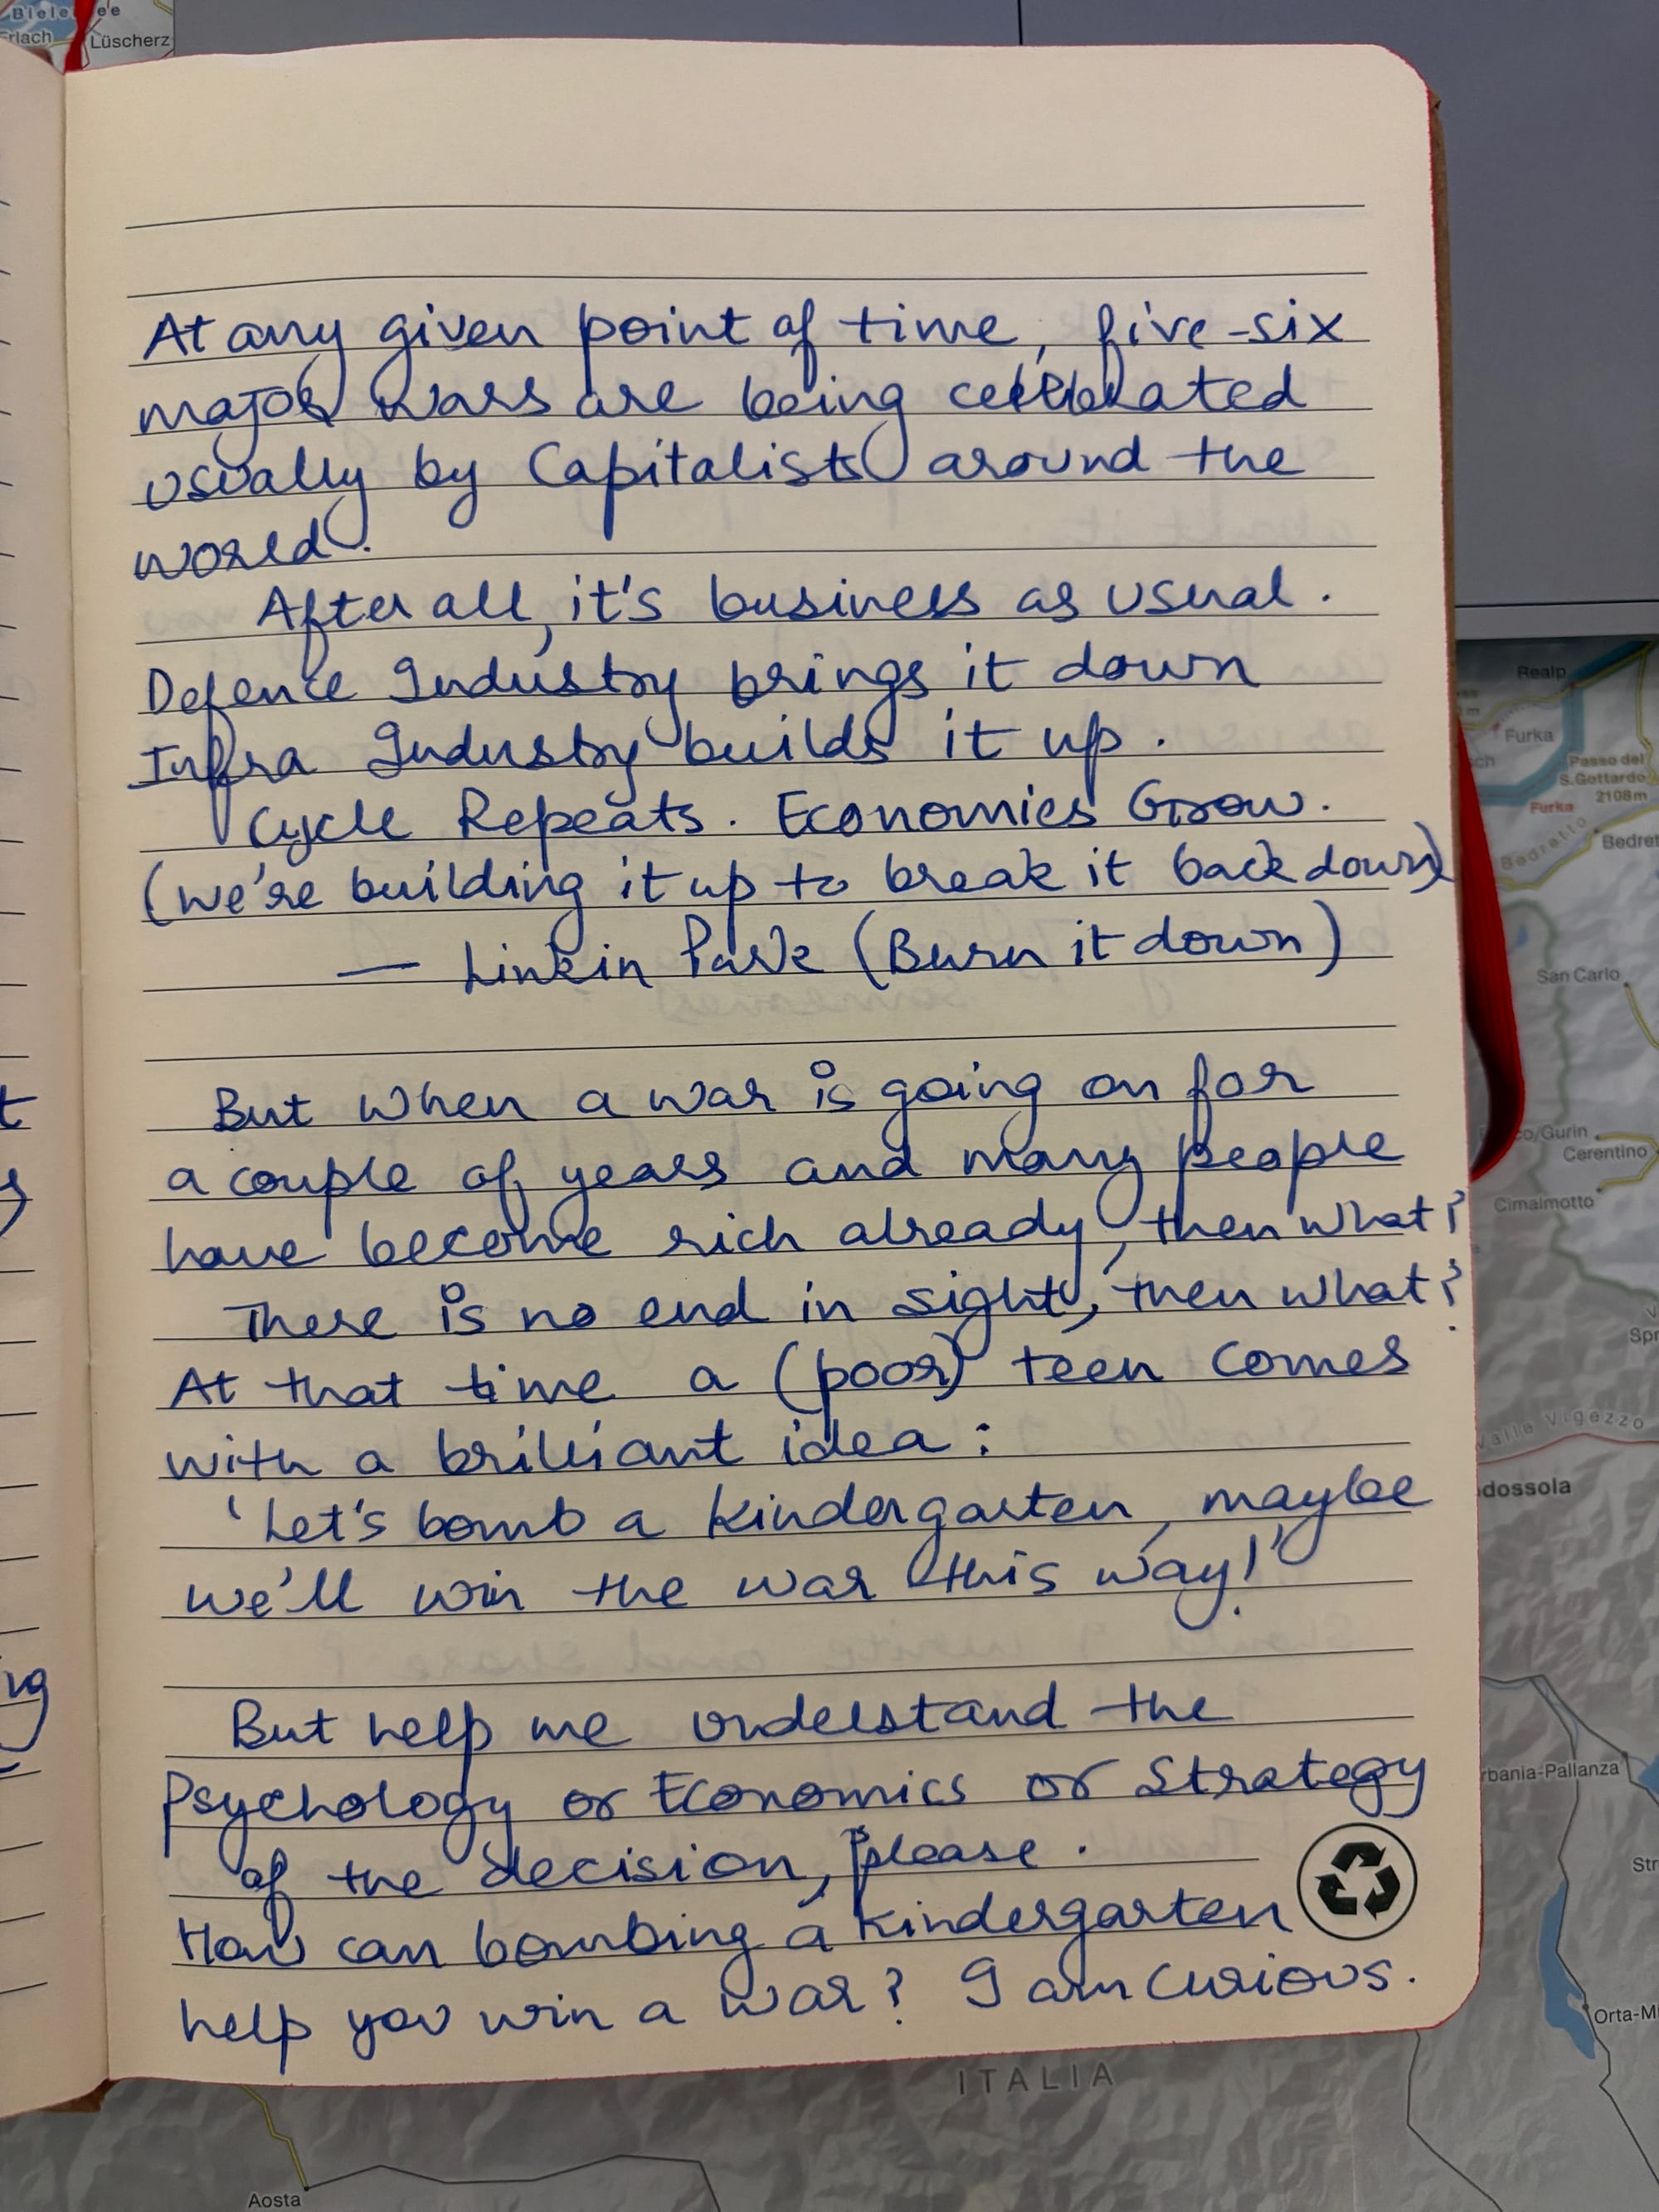 Biele
ee
Erlach
Lüscherz
At any given point of time, five-six
major wars are being celebrated
usually by Capitalists around the
world.
After all, it's business as usual.
Defence Industry brings it down
Infra Industry builds it up.
Cycle Repeats. Economies Grow.
(we're building it up to break it back down)
— Linkin Park (Burn it down)
But when a war is going on for
a couple of years and many people
have become rich already, then what?
There is no end in sight, then what?
At that time a (poor) teen comes
with a brilliant idea:
'Let's bomb a kindergarten, maybe
we'll win the war this way!'
But help me understand the
Psychology or Economics or Strategy
of the decision, please.
How can bombing a kindergarten
help you win a war? I am curious.
t
ng
Realp
Furka
Passo del
S.Gottardo
2108m
Furka
Bedretto
Bedret
San Carlo
co/Gurin
Cerentino
Cimalmotto
Valle Vigezzo
dossola
rbania-Pallanza
Str
Orta-M
ITALIA
Aosta